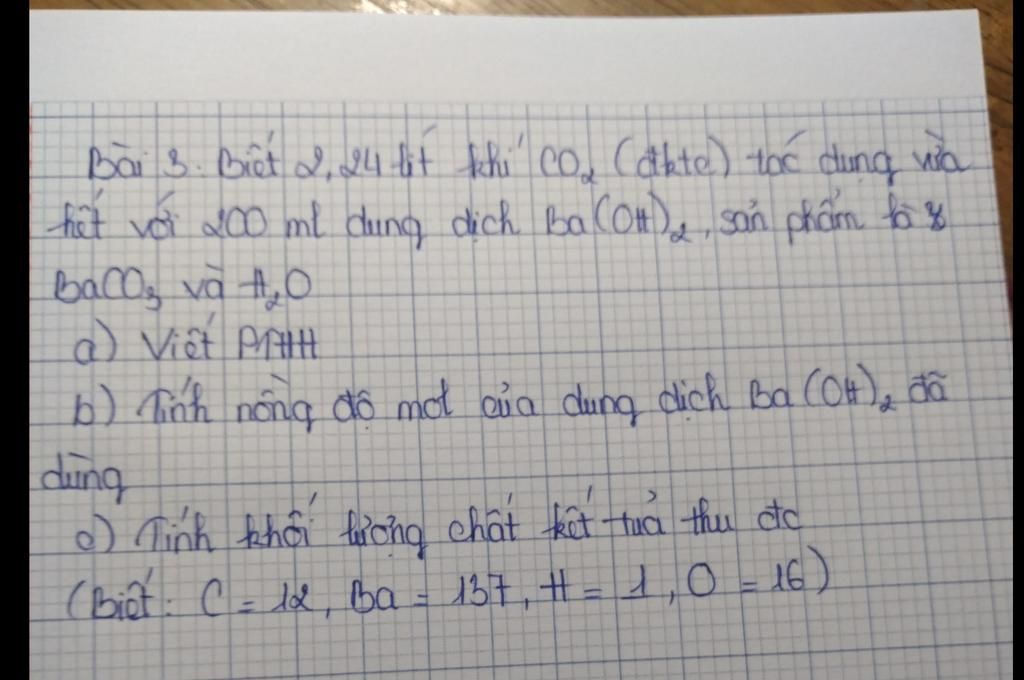 Bài 3. Biết 2,24 lít khí CO₂ (đktc) tác dụng vừa
hết với 200 ml dung dịch Ba(OH)₂, sản phẩm là
BaCO₃ và H₂O
a) Viết PTHH
b) Tính nồng độ mol của dung dịch Ba(OH)₂ đã
dùng
c) Tính khối lượng chất kết tủa thu đc
(Biết: C = 12, Ba = 137, H = 1, O = 16)